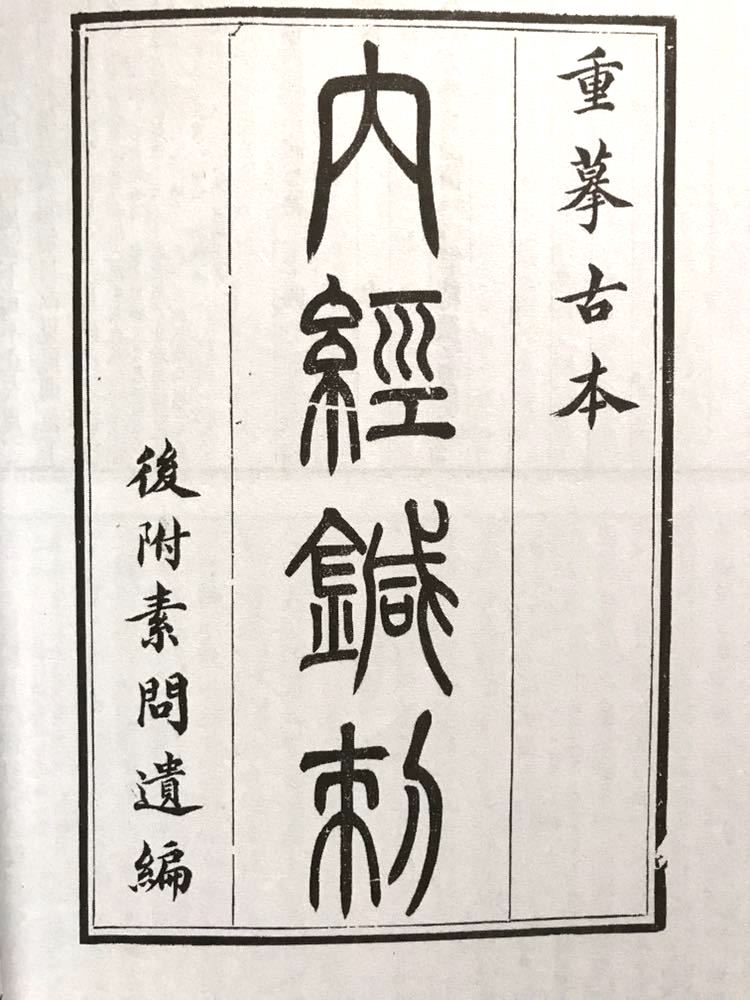 重摹古本
內經鍼刺
後附素問遺編